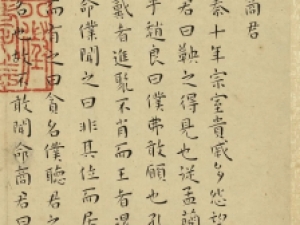 商君
秦十年宗室貴戚多怨望
君曰鞅之得見也從孟蘭
乎趙良曰僕弗敢願也孔
戴者進聚不肖而王者退
命僕聞之曰非其位而居
而有之曰貪名僕聽君之
名也故不敢聞命商君曰